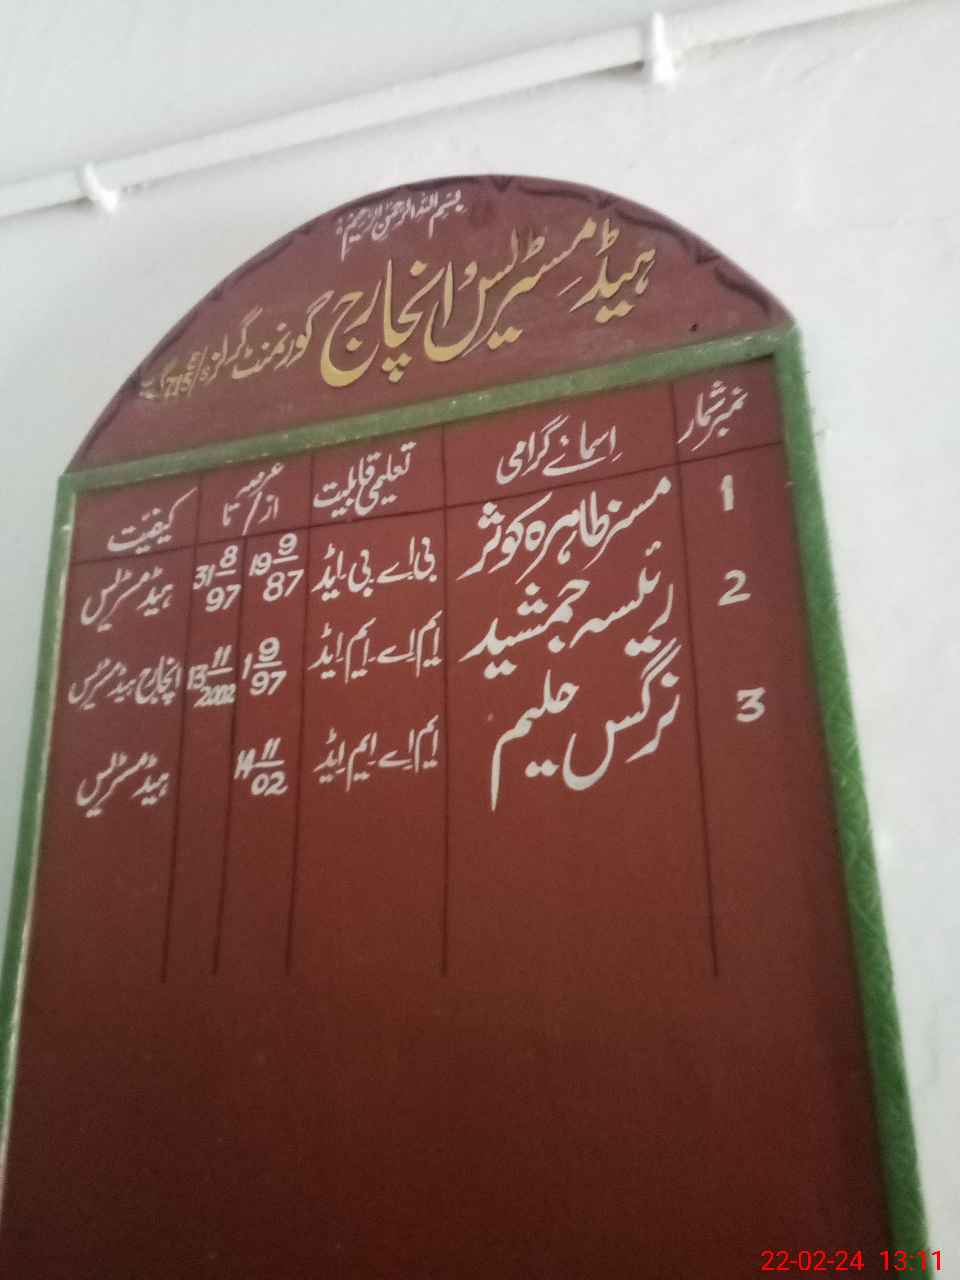 بسم اللہ الرحمٰن الرحیم
ہیڈ مسٹریس و انچارج گورنمنٹ گرلز
نمبر شمار اسمائے گرامی تعلیمی قابلیت عرصہ از / تا کیفیّت
1 مسز طاہرہ کوثر بی اے بی ایڈ 19 9 87 31 8 97 ہیڈ مسٹریس
2 رئیسہ جمشید ایم اے ۔ ایم ایڈ 1 9 97 13 11 2002 انچارج ہیڈ مسٹریس
3 نرگس حلیم ایم اے ایم ایڈ 14 11 02 ہیڈ مسٹریس
22-02-24 13:11